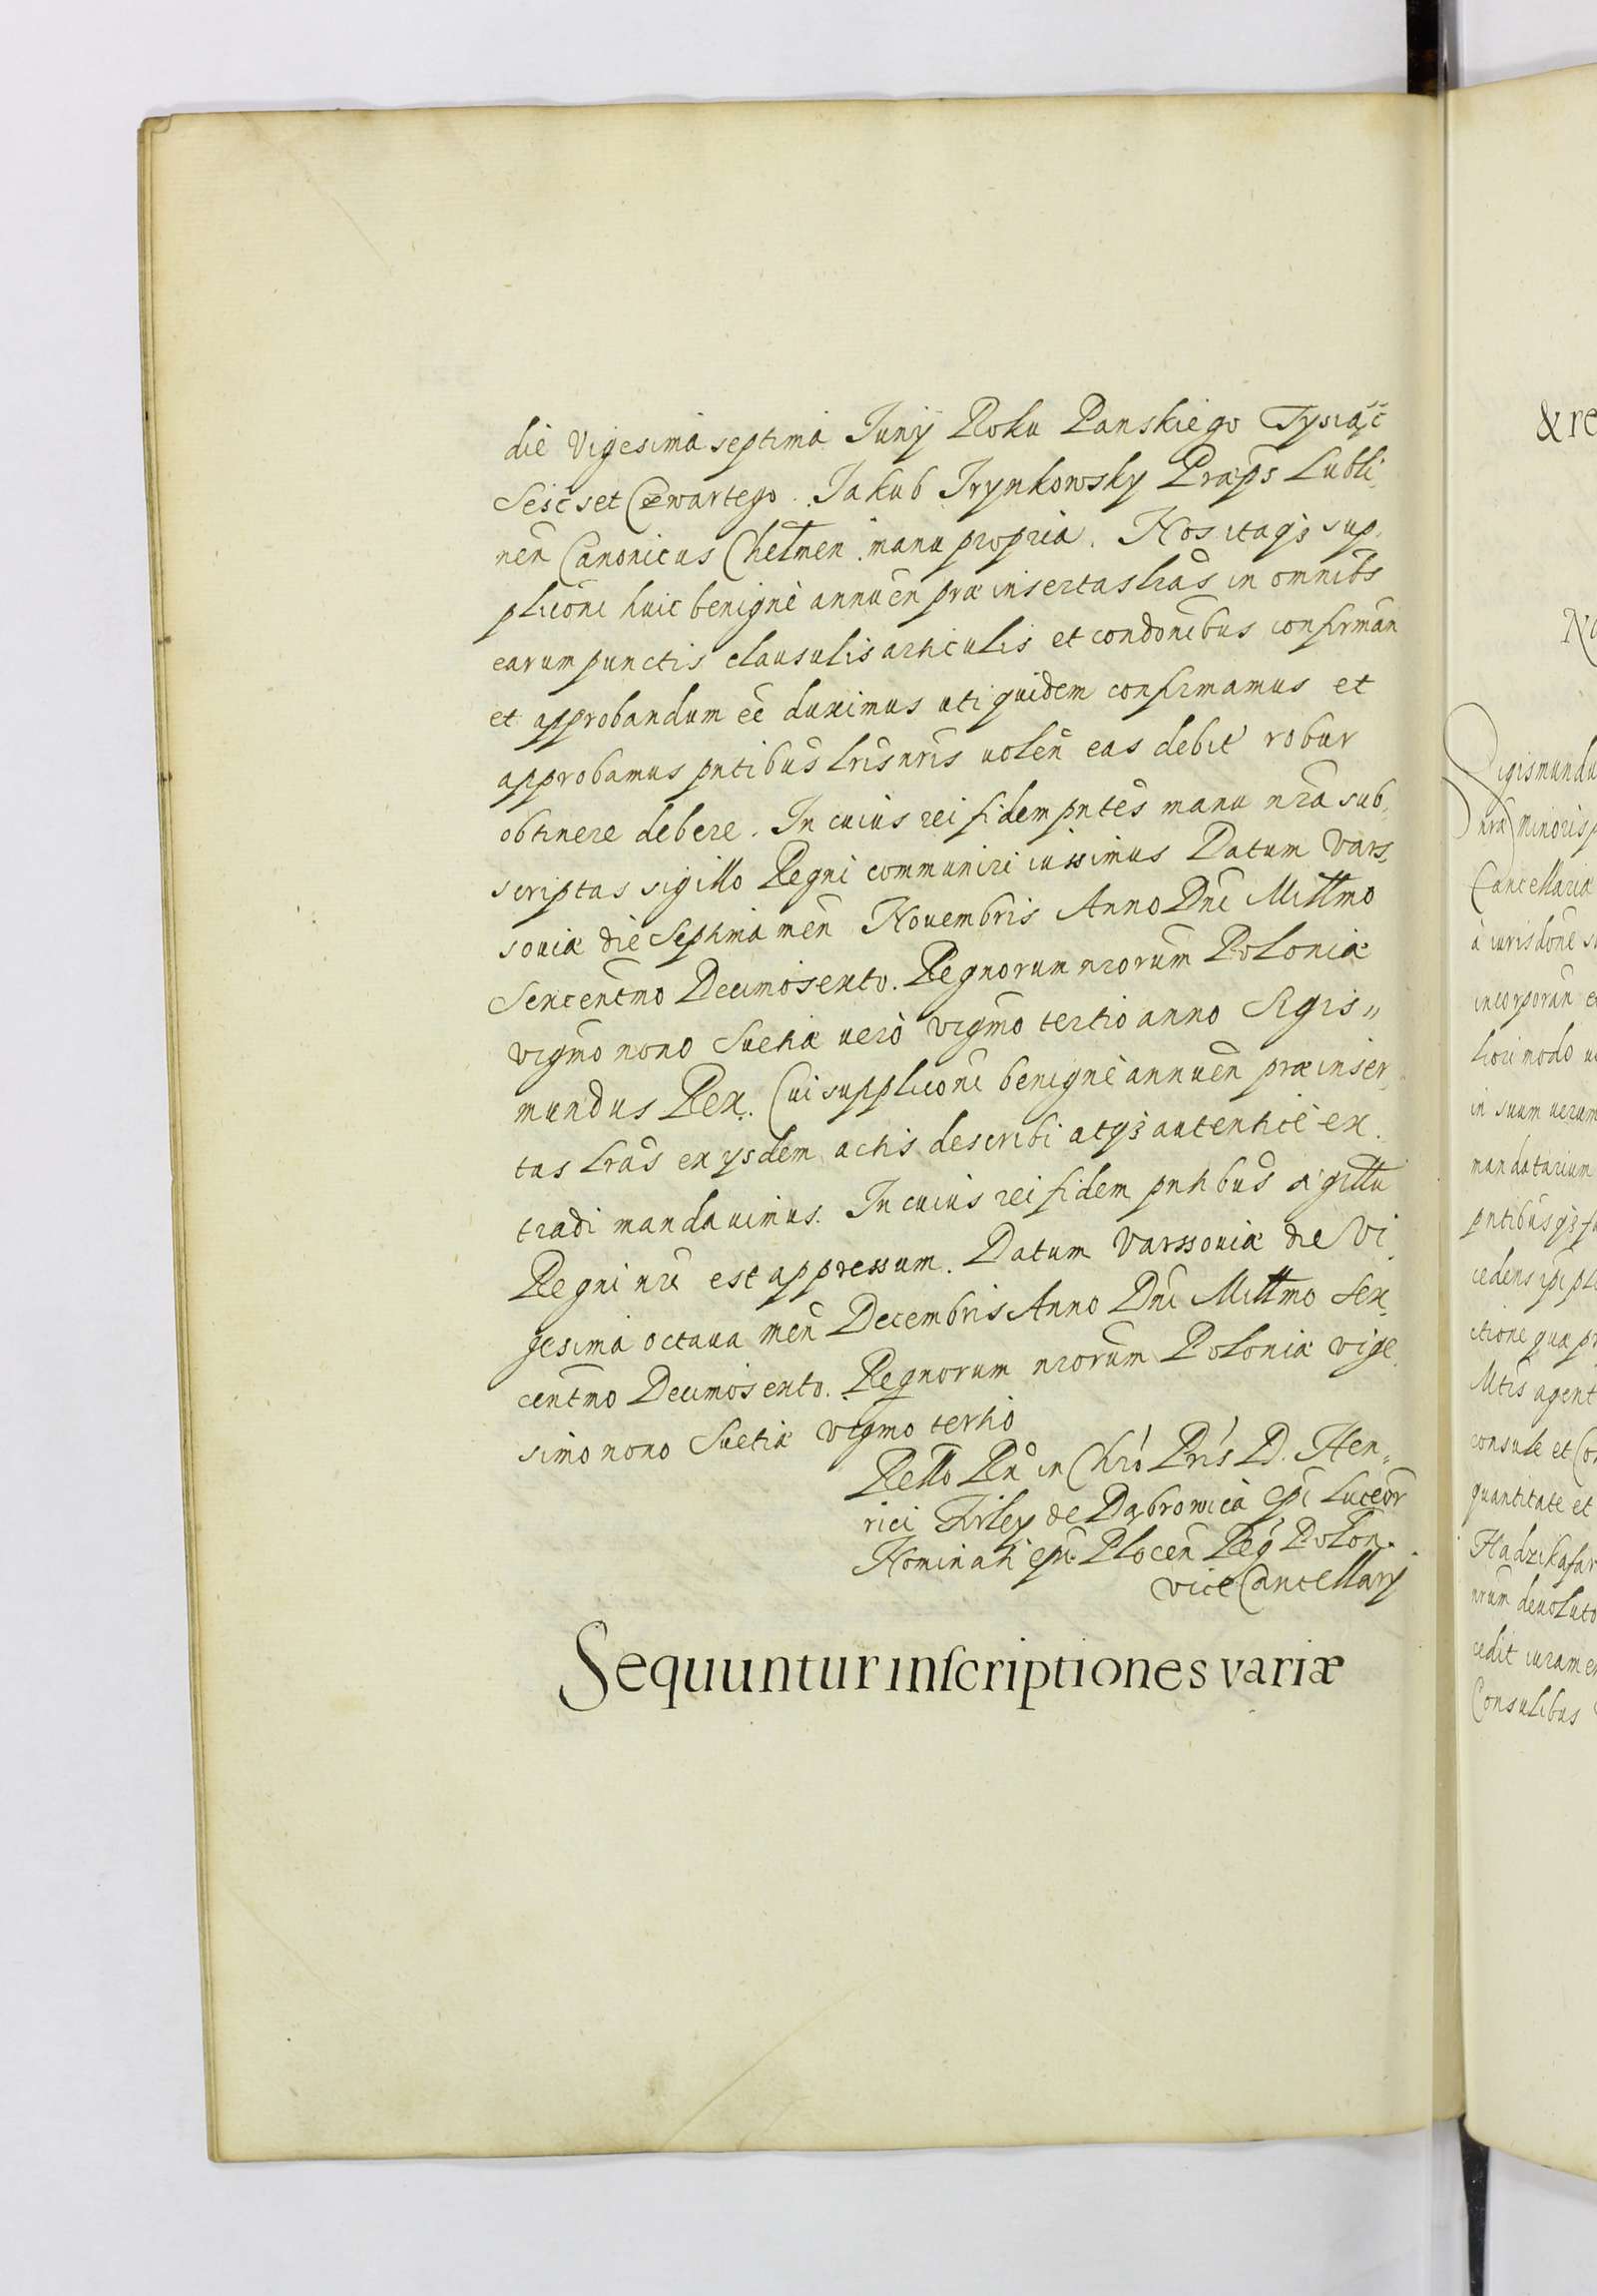 die Vigesima septima Iunij Roku Panskiego Tysiąc
Seśc set Czwartego. Jakub Trynkowsky Præps Lubli,
nen Canonicus Chelmen manu propria. Nos itaqȝ sup,
pliconi huic benignè annuen præinsertas lras in omnibs
earum punctis clausulis articulis et condonibus confirman
et approbandum ee duximus uti quidem confirmamus et
approbamus pntibus lris nris uolen eas debit robur
obtinere debere. In cuius rei fidem pntes manu nra sub,
scriptas sigillo Regni communiri iussimus Datum Vars,
souiæ die Septima men Nouembris Anno Dni Millmo
Sexcentmo Decimosexto. Regnorum nrorum Poloniæ
vigmo nono Suetiæ uerò vigmo tertio anno Sigis„
mundus Rex. Cui suppliconi benignè annuen præinser,
tas lras ex ysdem actis describi atqȝ autenticè ex,
tradi mandauimus. In cuius rei fidem pntibus sigillu
Regni nri est appressum. Datum Varssouiæ die Vi,
gesima octaua men Decembris Anno Dni Millmo Sex,
centmo Decimosexto. Regnorum nrorum Poloniæ vige,
simo nono Suetiæ vigmo tertio
Rello Rn in Chro Pris D. Hen„
rici Firley de Dąbrowica Epi Luceor
Nominati epi Plocen Reg Polon.
vice Cancellary
Sequuntur inſcriptiones variæ
& re
No
Sigismundu
nra minoris p
Cancellariæ
à iurisdone s
incorporan e
liori modo u
in suum uerum
mandatarium
pntibusqȝ fu
cedens ipi
ctione quæ pr
Mtis agent
consule et Co
quantitate et
Hadzikasar
nrum deuoluto
cedit iuram
Consulibus